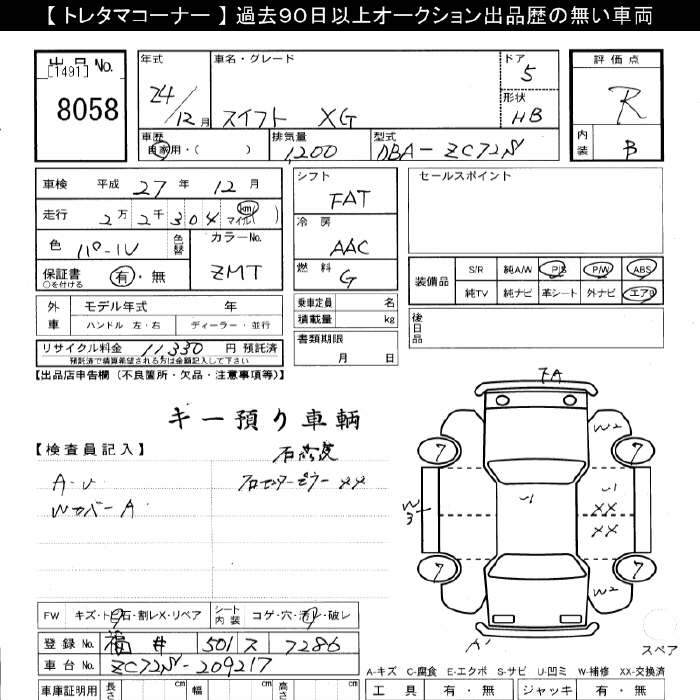 【 トレタマコーナー 】過去９０日以上オークション出品歴の無い車両
出品 No. 年式 車名・グレード ドア 評価点
[1491] 5
8058 24/12月 スイフト XG 形状 HB R
車歴 自家用・( ) 排気量 1,200 型式 DBA-ZC72S 内装 B
車検 平成 27 年 12 月 シフト FAT セールスポイント
走行 2万 2千 304 km マイル( ) 冷房 AAC
色 パール 色替 カラーNo. ZMT 燃料 G
保証書 有・無
○を付ける
装備品 S/R 純A/W P/S P/W ABS
純TV 純ナビ 革シート 外ナビ エアB
外車 モデル年式 年 乗車定員 名 後日品
ハンドル 左・右 ディーラー・並行 積載量 kg
リサイクル料金 11,330 円 預託済 書類期限
預託済で精算希望される方は金額記入して下さい 月 日
【出品店申告欄（不良箇所・欠品・注意事項等）】
キー預り車輌
【検査員記入】
A・U 石センターピラー XX
WカバーA
FA
W2
7 7
W3 U1 U1 XX XX
7 7
W2
FW キズ・トビ石・割レX・リペア シート内装 コゲ・穴・汚レ・破レ
登録 No. 福井 501 ス 7286
車台 No. ZC72S-209217
スペア
A-キズ C-腐食 E-エクボ S-サビ U-凹ミ W-補修 XX-交換済
車庫証明用 長さ cm 幅 cm 高さ cm 工具 有・無 ジャッキ 有・無